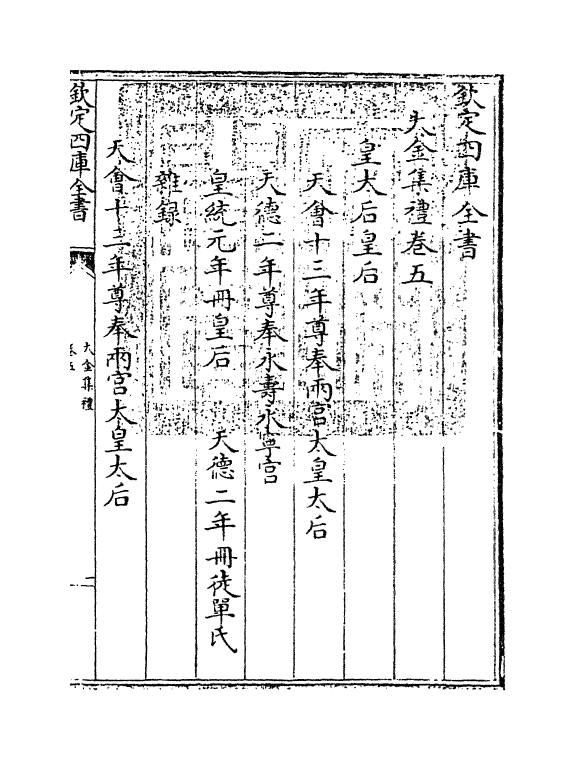 欽定四庫全書
大金集禮卷五
皇太后皇后
天會十三年尊奉兩宮太皇太后
天德二年尊奉永壽永寧宮
皇統元年冊皇后　天德二年冊徒單氏
雜録
天會十三年尊奉兩宮太皇太后
欽定四庫全書
大金集禮
卷五